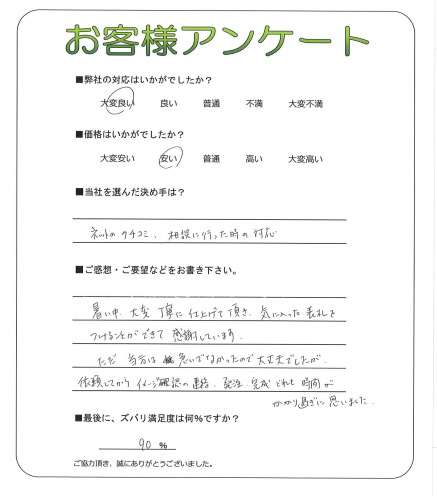 お客様アンケート
■弊社の対応はいかがでしたか？
大変良い 良い 普通 不満 大変不満
■価格はいかがでしたか？
大変安い 安い 普通 高い 大変高い
■当社を選んだ決め手は？
ネットのクチコミ、相談に行った時の対応
■ご感想・ご要望などをお書き下さい。
暑い中、大変丁寧に仕上げて頂き、気に入った表札を
つけることができて感謝しています。
ただ当方は急いでなかったので大丈夫でしたが、
依頼してからイメージ確認の連絡、発注、完成どれも時間が
かかり過ぎに思いました。
■最後に、ズバリ満足度は何%ですか？
90 %
ご協力頂き、誠にありがとうございました。